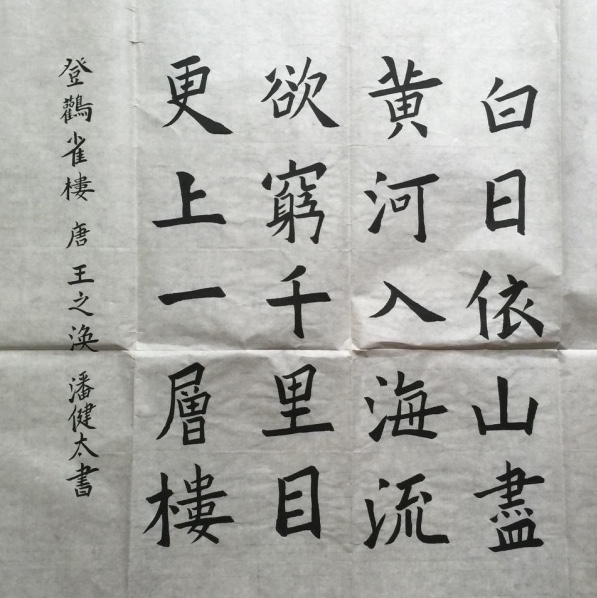 白日依山盡
黃河入海流
欲窮千里目
更上一層樓
登鸛雀樓 唐 王之渙 潘健太書